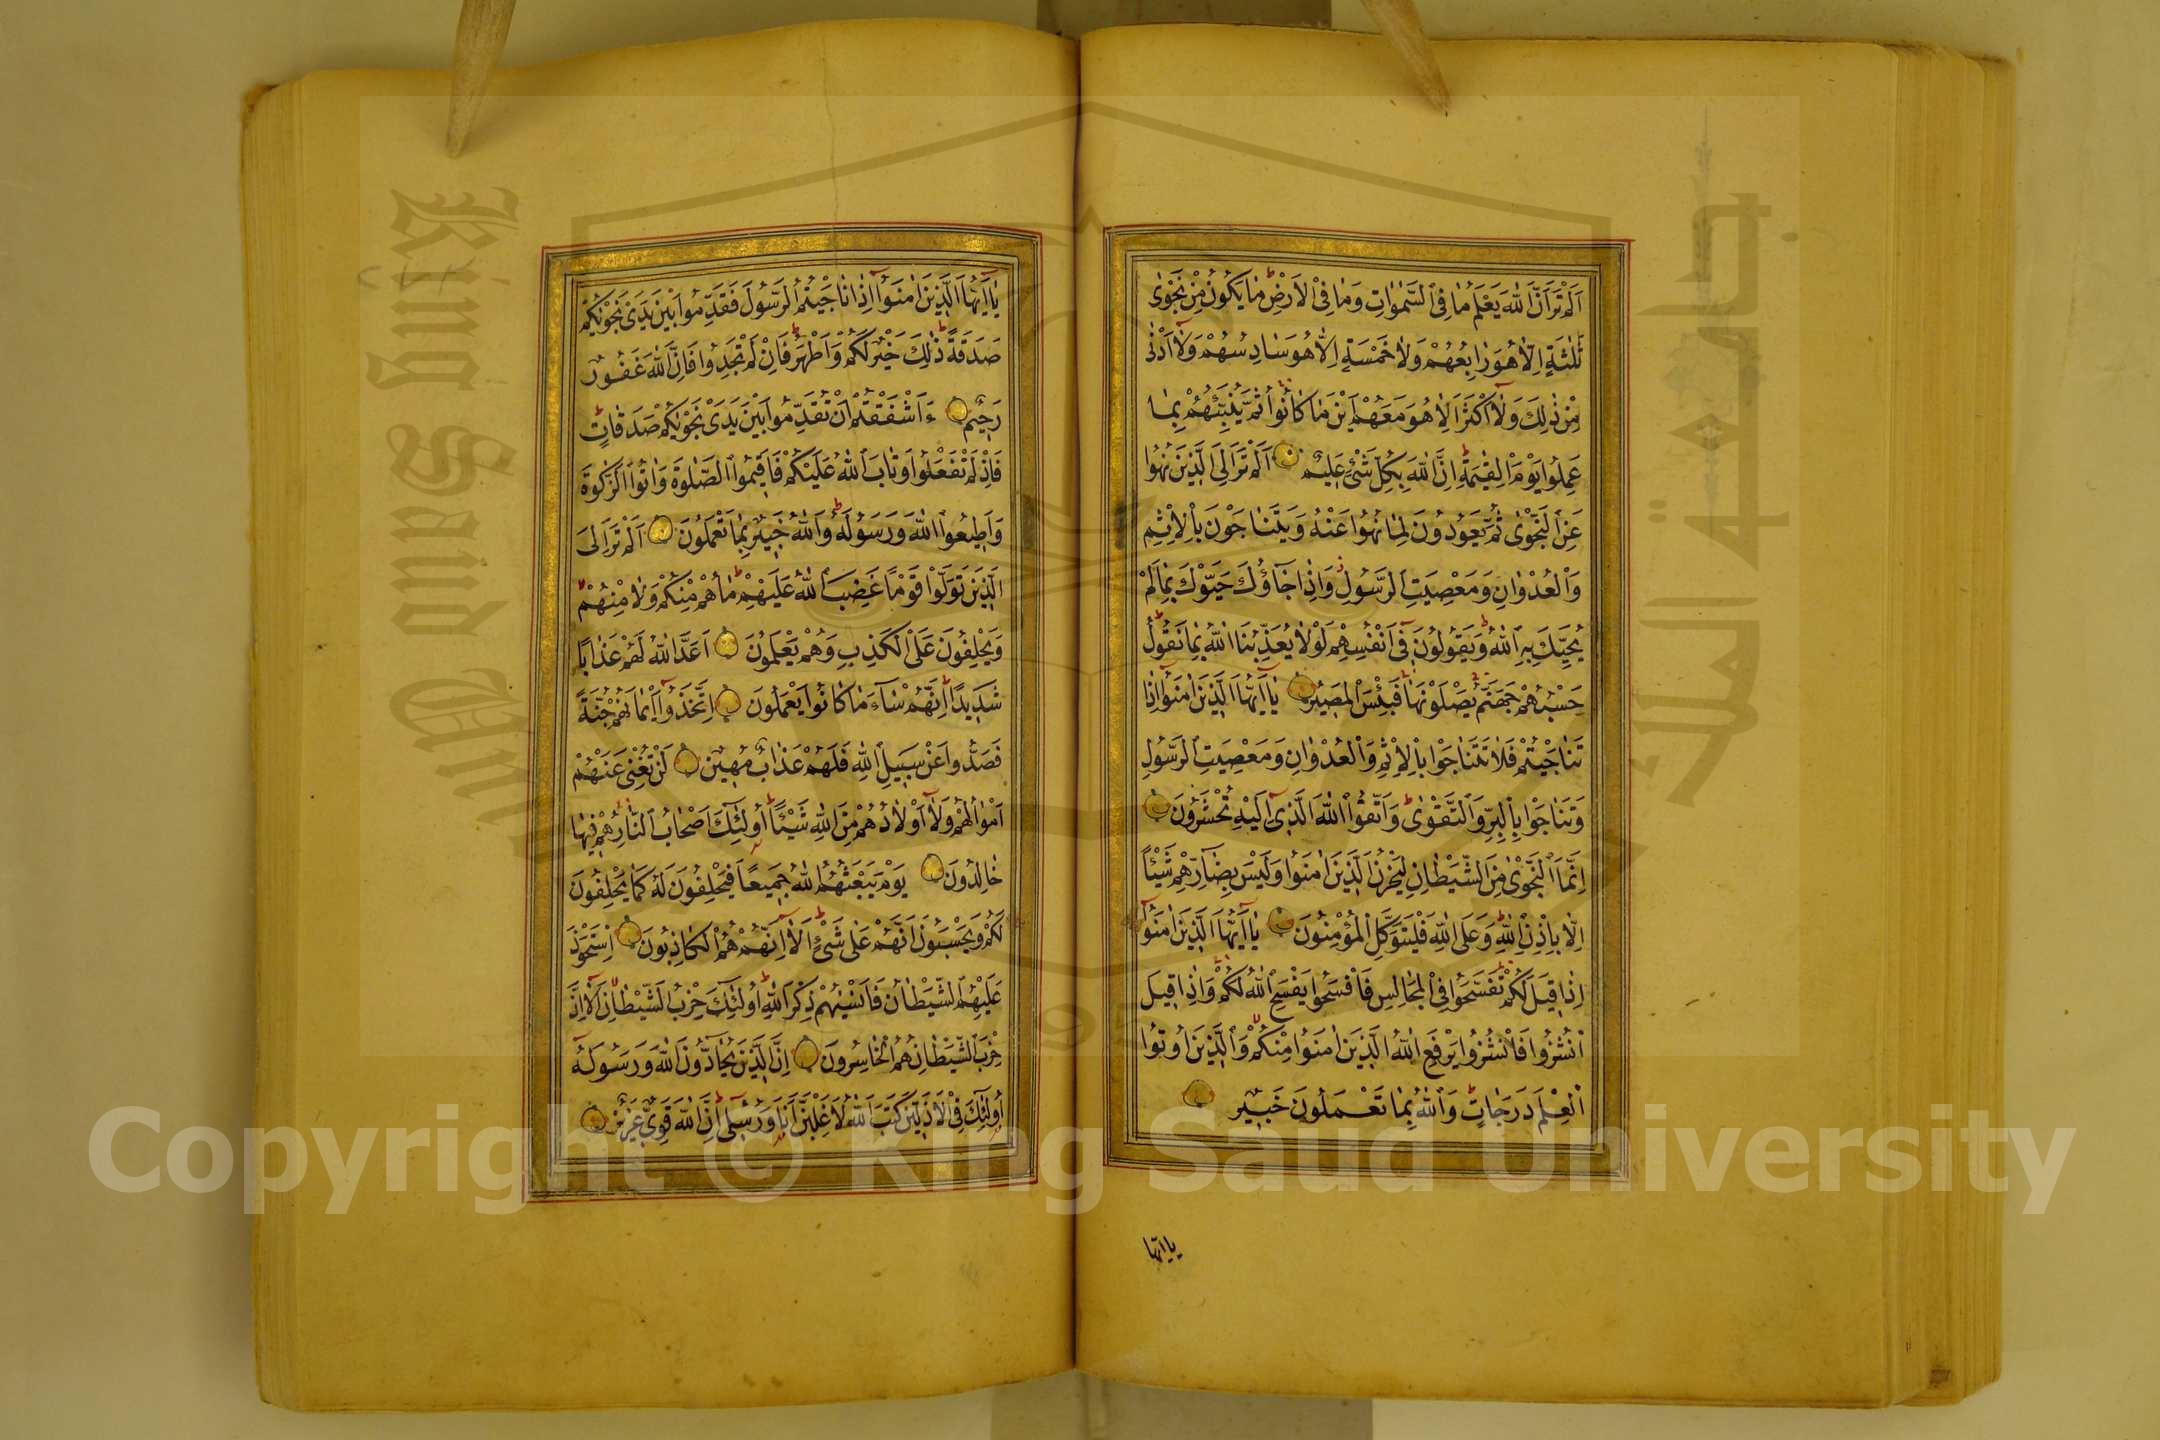 اَلَمْ تَرَ اَنَّ اللّٰهَ يَعْلَمُ مَا فِي السَّمٰوَاتِ وَمَا فِي الْاَرْضِ مَا يَكُونُ مِنْ نَجْوٰى
ثَلٰثَةٍ اِلَّا هُوَ رَابِعُهُمْ وَلَا خَمْسَةٍ اِلَّا هُوَ سَادِسُهُمْ وَلَا اَدْنٰى
مِنْ ذٰلِكَ وَلَا اَكْثَرَ اِلَّا هُوَ مَعَهُمْ اَيْنَ مَا كَانُوا ثُمَّ يُنَبِّئُهُمْ بِمَا
عَمِلُوا يَوْمَ الْقِيٰمَةِ اِنَّ اللّٰهَ بِكُلِّ شَيْءٍ عَلِيمٌ اَلَمْ تَرَ اِلَى الَّذِينَ نُهُوا
عَنِ النَّجْوٰى ثُمَّ يَعُودُونَ لِمَا نُهُوا عَنْهُ وَيَتَنَاجَوْنَ بِالْاِثْمِ
وَالْعُدْوَانِ وَمَعْصِيَتِ الرَّسُولِ وَاِذَا جَاؤُكَ حَيَّوْكَ بِمَا لَمْ
يُحَيِّكَ بِهِ اللّٰهُ وَيَقُولُونَ فِي اَنْفُسِهِمْ لَوْلَا يُعَذِّبُنَا اللّٰهُ بِمَا نَقُولُ
حَسْبُهُمْ جَهَنَّمُ يَصْلَوْنَهَا فَبِئْسَ الْمَصِيرُ يَا اَيُّهَا الَّذِينَ اٰمَنُوا اِذَا
تَنَاجَيْتُمْ فَلَا تَتَنَاجَوْا بِالْاِثْمِ وَالْعُدْوَانِ وَمَعْصِيَتِ الرَّسُولِ
وَتَنَاجَوْا بِالْبِرِّ وَالتَّقْوٰى وَاتَّقُوا اللّٰهَ الَّذِي اِلَيْهِ تُحْشَرُونَ
اِنَّمَا النَّجْوٰى مِنَ الشَّيْطَانِ لِيَحْزُنَ الَّذِينَ اٰمَنُوا وَلَيْسَ بِضَارِّهِمْ شَيْئًا
اِلَّا بِاِذْنِ اللّٰهِ وَعَلَى اللّٰهِ فَلْيَتَوَكَّلِ الْمُؤْمِنُونَ يَا اَيُّهَا الَّذِينَ اٰمَنُوا
اِذَا قِيلَ لَكُمْ تَفَسَّحُوا فِي الْمَجَالِسِ فَافْسَحُوا يَفْسَحِ اللّٰهُ لَكُمْ وَاِذَا قِيلَ
انْشُزُوا فَانْشُزُوا يَرْفَعِ اللّٰهُ الَّذِينَ اٰمَنُوا مِنْكُمْ وَالَّذِينَ اُوتُوا
الْعِلْمَ دَرَجَاتٍ وَاللّٰهُ بِمَا تَعْمَلُونَ خَبِيرٌ
يا ايها
يَا اَيُّهَا الَّذِينَ اٰمَنُوا اِذَا نَاجَيْتُمُ الرَّسُولَ فَقَدِّمُوا بَيْنَ يَدَيْ نَجْوٰيكُمْ
صَدَقَةً ذٰلِكَ خَيْرٌ لَكُمْ وَاَطْهَرُ فَاِنْ لَمْ تَجِدُوا فَاِنَّ اللّٰهَ غَفُورٌ
رَحِيمٌ ءَاَشْفَقْتُمْ اَنْ تُقَدِّمُوا بَيْنَ يَدَيْ نَجْوٰيكُمْ صَدَقَاتٍ
فَاِذْ لَمْ تَفْعَلُوا وَتَابَ اللّٰهُ عَلَيْكُمْ فَاَقِيمُوا الصَّلٰوةَ وَاٰتُوا الزَّكٰوةَ
وَاَطِيعُوا اللّٰهَ وَرَسُولَهُ وَاللّٰهُ خَبِيرٌ بِمَا تَعْمَلُونَ اَلَمْ تَرَ اِلَى
الَّذِينَ تَوَلَّوْا قَوْمًا غَضِبَ اللّٰهُ عَلَيْهِمْ مَا هُمْ مِنْكُمْ وَلَا مِنْهُمْ
وَيَحْلِفُونَ عَلَى الْكَذِبِ وَهُمْ يَعْلَمُونَ اَعَدَّ اللّٰهُ لَهُمْ عَذَابًا
شَدِيدًا اِنَّهُمْ سَاءَ مَا كَانُوا يَعْمَلُونَ اِتَّخَذُوا اَيْمَانَهُمْ جُنَّةً
فَصَدُّوا عَنْ سَبِيلِ اللّٰهِ فَلَهُمْ عَذَابٌ مُهِينٌ لَنْ تُغْنِيَ عَنْهُمْ
اَمْوَالُهُمْ وَلَا اَوْلَادُهُمْ مِنَ اللّٰهِ شَيْئًا اُولٰئِكَ اَصْحَابُ النَّارِ هُمْ فِيهَا
خَالِدُونَ يَوْمَ يَبْعَثُهُمُ اللّٰهُ جَمِيعًا فَيَحْلِفُونَ لَهُ كَمَا يَحْلِفُونَ
لَكُمْ وَيَحْسَبُونَ اَنَّهُمْ عَلٰى شَيْءٍ اَلَا اِنَّهُمْ هُمُ الْكَاذِبُونَ اِسْتَحْوَذَ
عَلَيْهِمُ الشَّيْطَانُ فَاَنْسٰيهُمْ ذِكْرَ اللّٰهِ اُولٰئِكَ حِزْبُ الشَّيْطَانِ اَلَا اِنَّ
حِزْبَ الشَّيْطَانِ هُمُ الْخَاسِرُونَ اِنَّ الَّذِينَ يُحَادُّونَ اللّٰهَ وَرَسُولَهُ
اُولٰئِكَ فِي الْاَذَلِّينَ كَتَبَ اللّٰهُ لَاَغْلِبَنَّ اَنَا وَرُسُلِي اِنَّ اللّٰهَ قَوِيٌّ عَزِيزٌ
King Saud University
جامعة الملك
Copyright © King Saud University